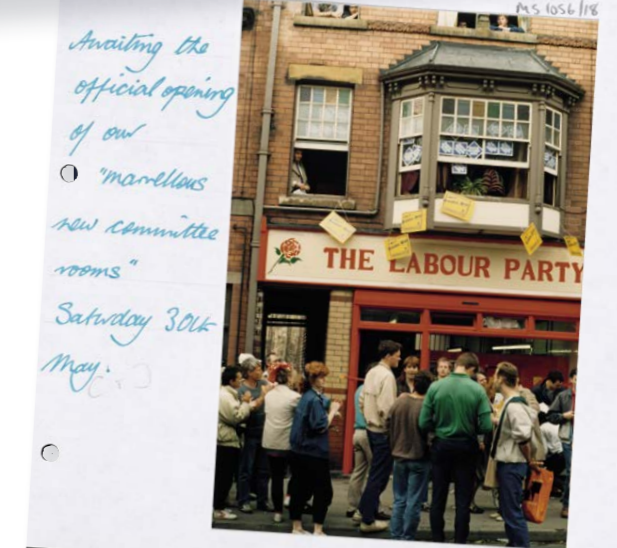 MS 1056/18
Awaiting the
official opening
of our
"marvellous
new committee
rooms"
Saturday 30th
May.
THE LABOUR PARTY